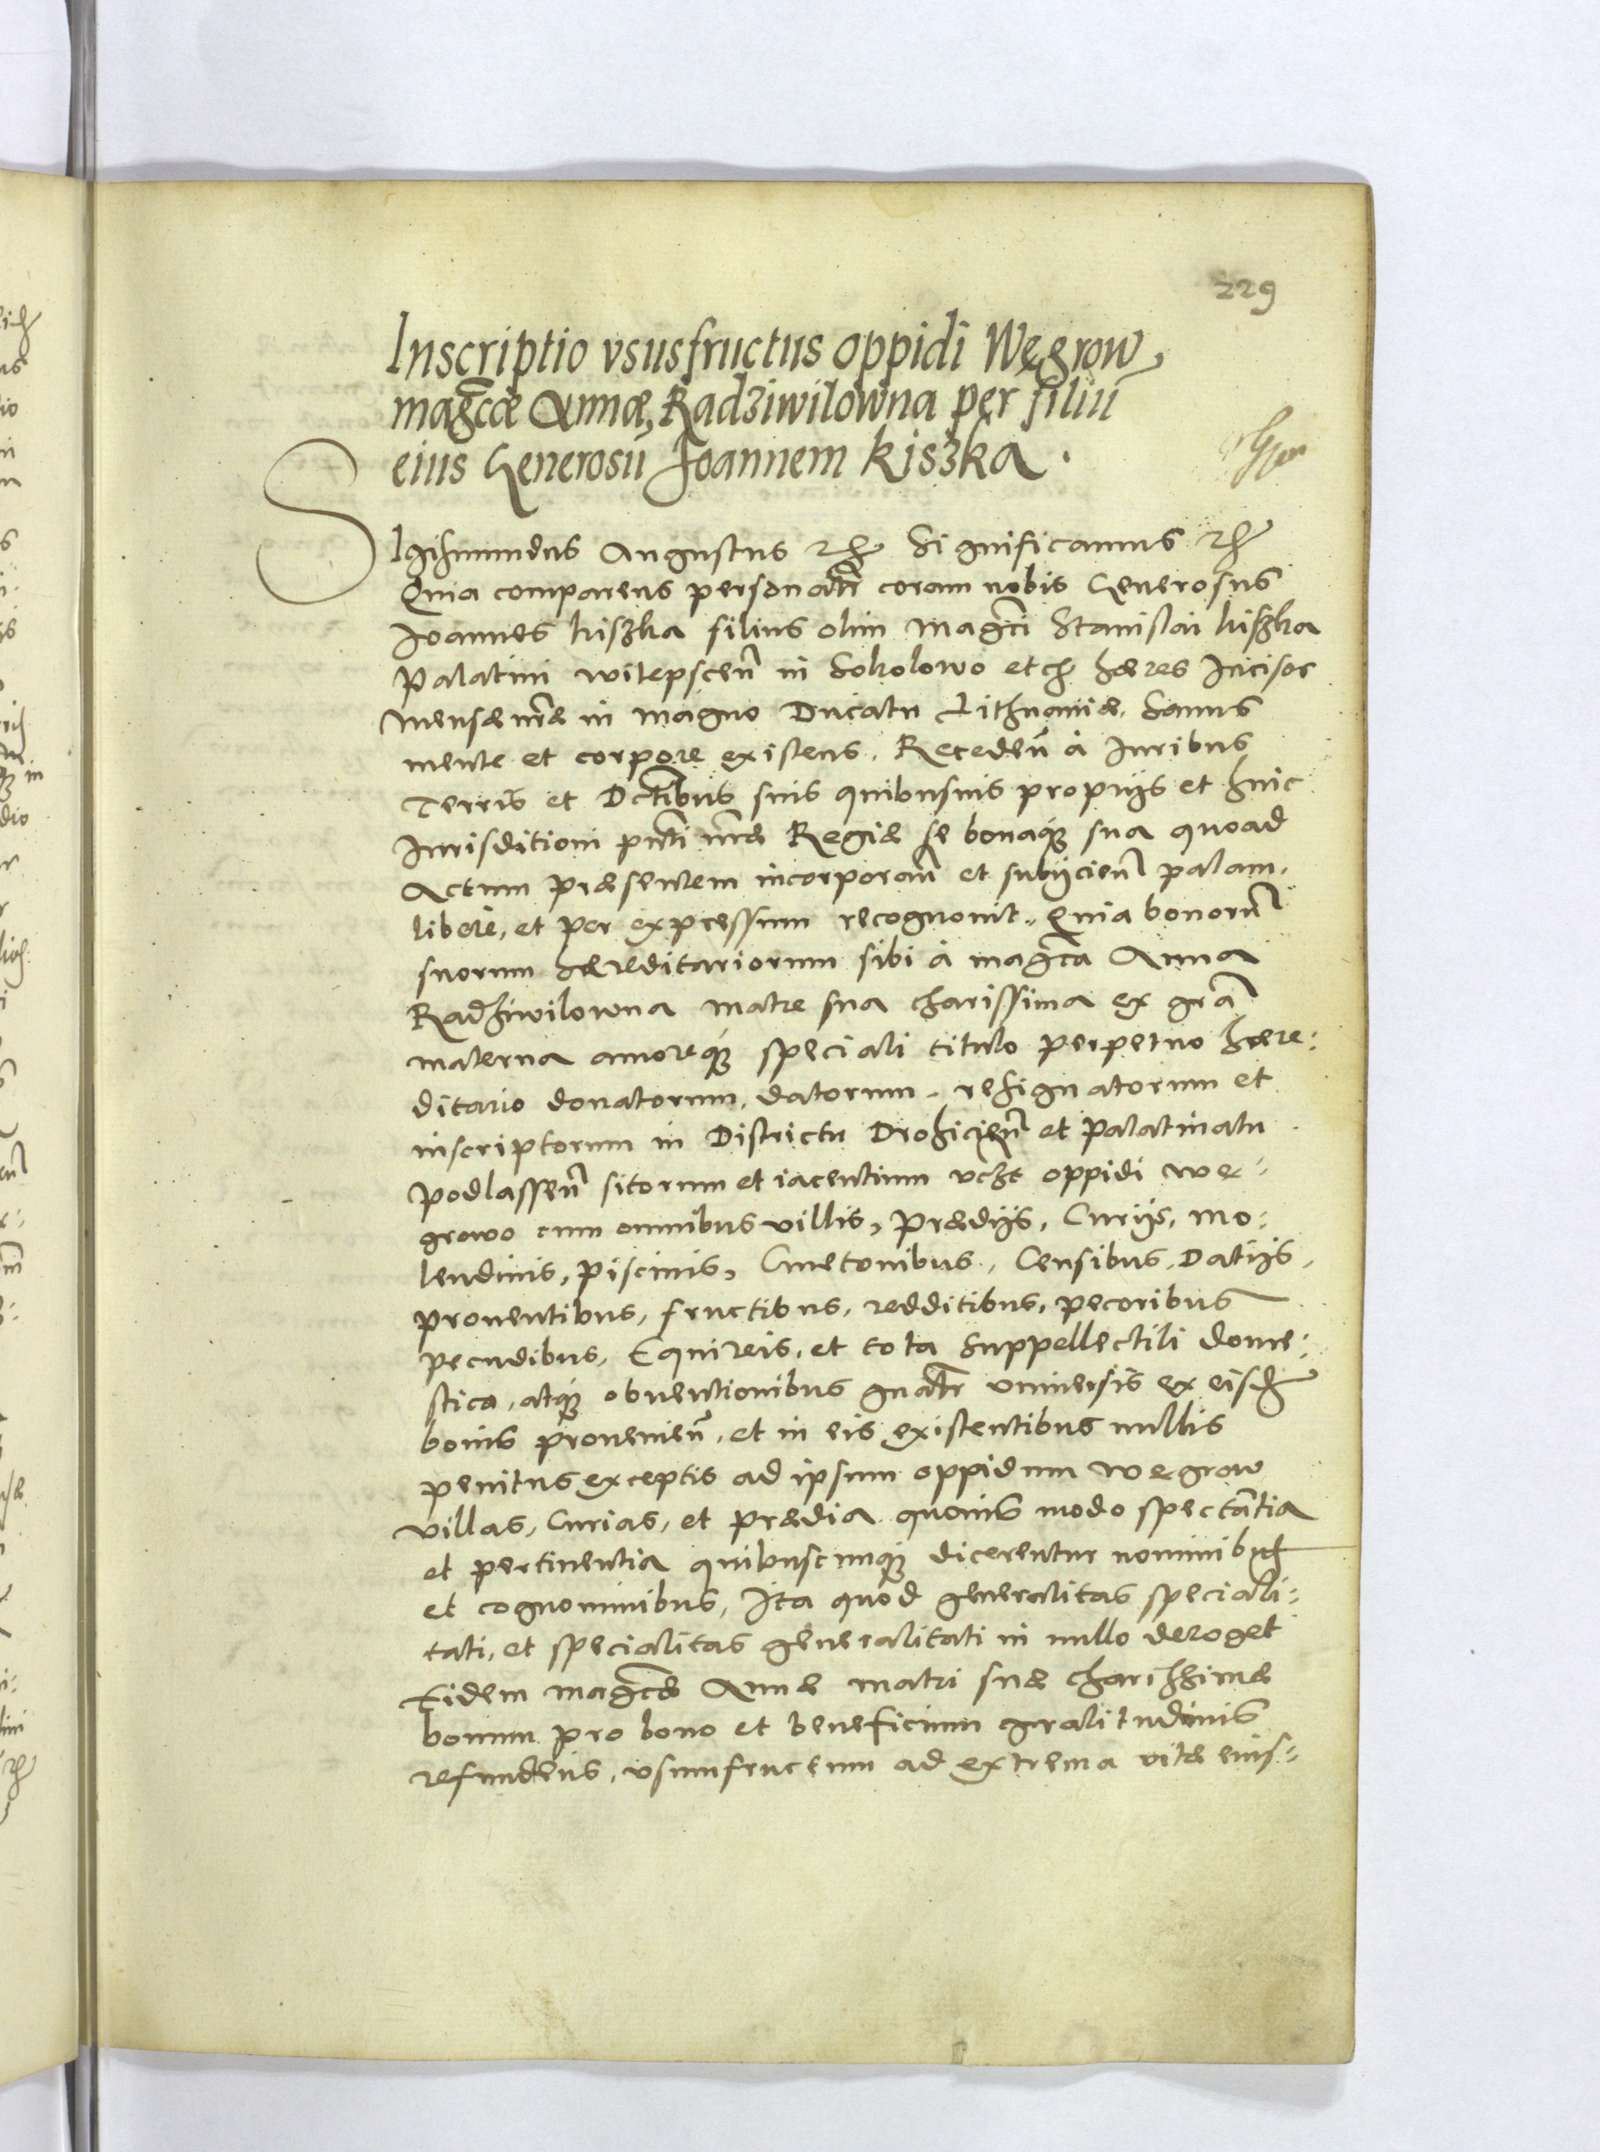 229
Inscriptio vsusfructus oppidi Węgrow,
mag̃cæ Annæ, Radziwilowna per filiũ
eius Generosũ Joannem Kiszka.
Sigismundus Augustus etc̃ Significamus etc̃
Quia comparens personalr̃ coram nobis Generosus
Joannes Kiszka filius olim Mag̃ci Stanislai Kiszka
Palatini witepsceñ in Sokolowo etc̃ hæres Incisor
mensæ nr̃æ in magno Ducatu Lithuaniæ. Sanus
mente et corpore existens. Recedeñ à Iuribus
Terris et Dctibus suis quibusuis proprijs et huic
Iurisditioni pñti nr̃æ Regiæ se bonaq́ue sua quoad
Actum præsentem incorporañ et subijcieñ palam.
liberè, et per expressum recognouit. Quia bonorũ
suorum hæreditariorum sibi à mag̃ca Anna
Radziwilowna matre sua charissima ex gr̃a
materna amoreq́ue speciali titulo perpetuo hære:
ditario donatorum, datorum, resignatorum et
inscriptorum in Districtu Drohicieñ et Palatinatu
Podlasseñ sitorum et iacentium vcz̃t oppidi We:
growo cum omnibus villis, Prædijs, Curijs, mo:
lendinis, Piscinis, Cmetonibus, Censibus, Datijs,
prouentibus, fructibus, redditibus, pecoribus
pecudibus, Equireis, et tota Suppellectili dome:
stica, atq́ue obuentionibus gñalr̃ vniuersis ex eisd̃
bonis prouenieñ, et in eis existentibus nullis
penitus exceptis ad ipsum oppidum Wegrow
villas, Curias, et prædia quouis modo spectãtia
et pertinentia quibuscunq́ue dicerentur nominibus
et cognominibus, Ita quòd generalitas speciali:
tati, et specialitas generalitati in nullo deroget
Eidem mag̃cæ Annæ matri suæ charissimæ
bonum pro bono et beneficium gratitudinis
refundens, vsumfructum ad extrema vitæ eius: